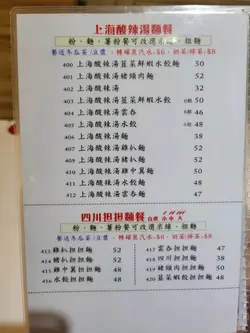 上海酸辣湯麵餐
粉、麵、薯粉餐可改選米線、粗麵
餐送冬瓜茶/豆漿，轉罐裝汽水+$6、奶茶/檸茶+$8
400 上海酸辣湯韮菜鮮蝦水餃麵 50
401 上海酸辣湯豬頸肉麵 52
402 上海酸辣湯 36
403 上海酸辣湯韮菜鮮蝦水餃 50
404 上海酸辣湯雲吞 46
405 上海酸辣湯水餃 48
406 上海酸辣湯麵 32
407 上海酸辣湯雞扒麵 52
408 上海酸辣湯豬扒麵 52
409 上海酸辣湯雞中翼麵 50
410 上海酸辣湯水餃麵 48
412 上海酸辣湯雲吞麵 46
四川担担麵餐
粉、麵、薯粉餐可改選米線、粗麵
餐送冬瓜茶/豆漿，轉罐裝汽水+$6、奶茶/檸茶+$8
413 雞扒担担麵 52
414 豬扒担担麵 52
415 雞中翼担担麵 52
416 水餃担担麵 48
417 雲吞担担麵 47
418 四川担担麵 38
419 豬頸肉担担麵 52
420 韮菜蝦餃担担麵 50